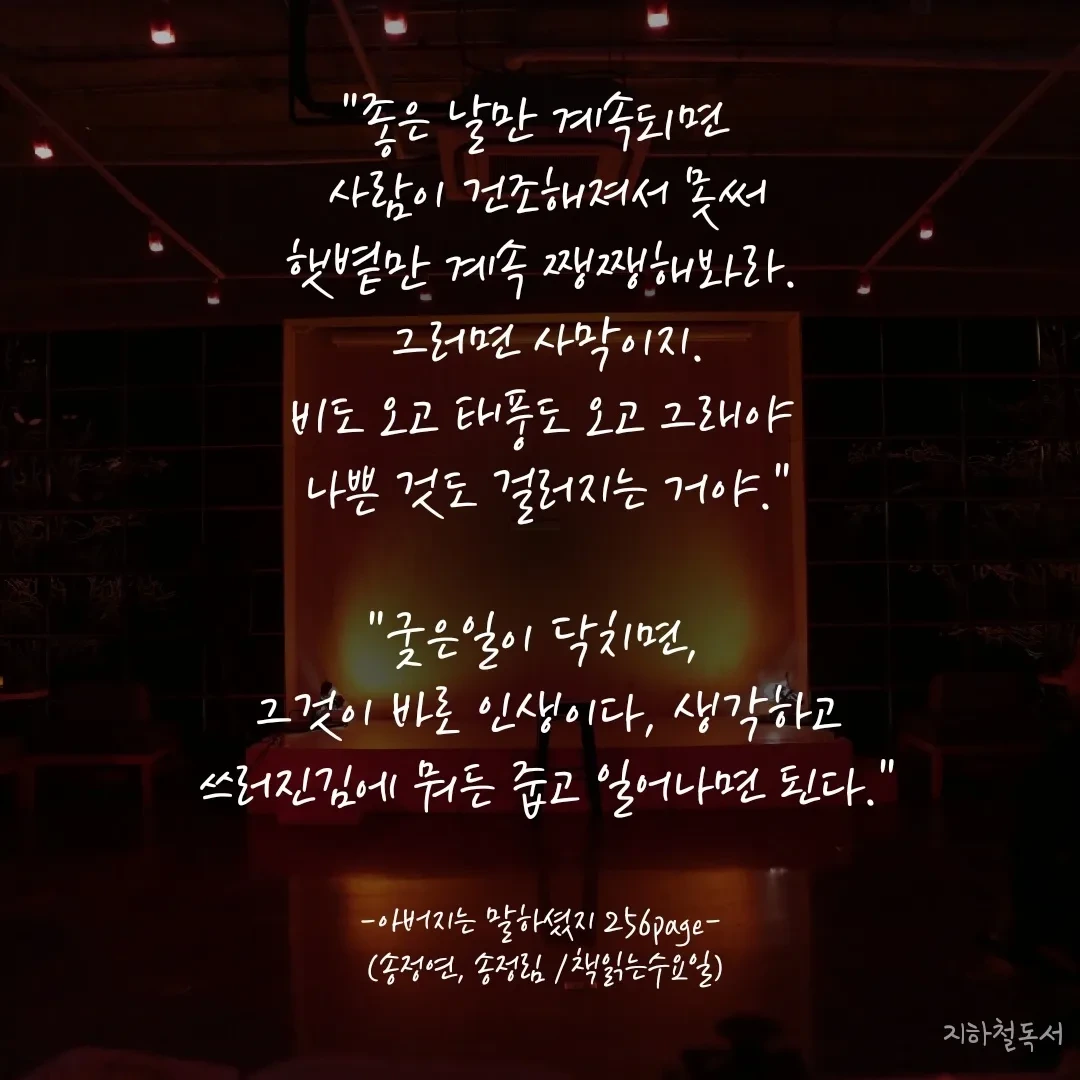 "좋은 날만 계속되면
사람이 건조해져서 못써
햇볕만 계속 쨍쨍해봐라.
그러면 사막이지.
비도 오고 태풍도 오고 그래야
나쁜 것도 걸러지는 거야."
"궂은일이 닥치면,
그것이 바로 인생이다, 생각하고
쓰러진김에 뭐든 줍고 일어나면 된다."
-아버지는 말하셨지 256page-
(송정연, 송정림 /책읽는수요일)
지하철독서